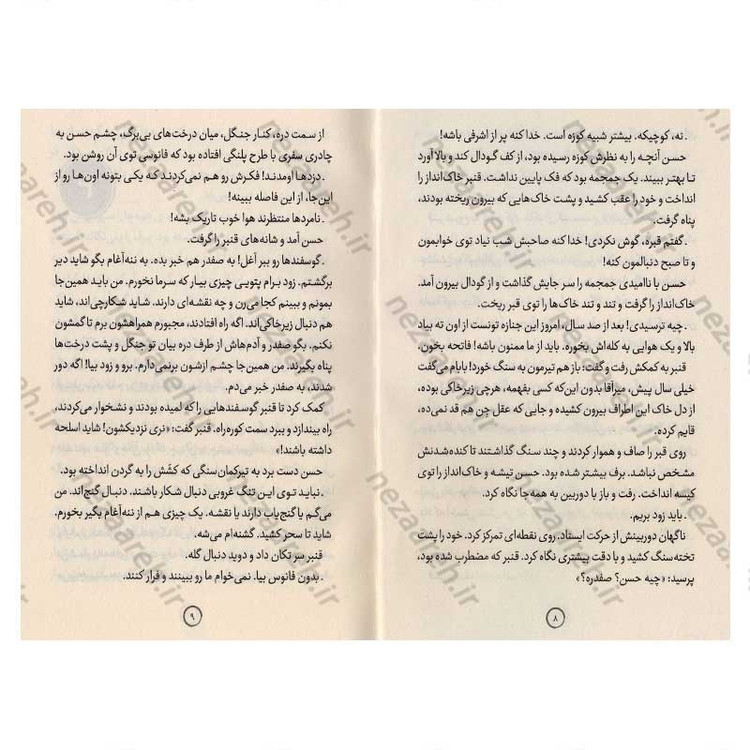 . نه، کوچیکه. بیشتر شبیه کوزه است. خدا کنه پر از اشرفی باشه!
حسن آنچه را به نظرش کوزه رسیده بود، از کف گودال کند و بالا آورد
تا بهتر ببیند. یک جمجمه بود که فک پایین نداشت. قنبر خاک‌انداز را
انداخت و خود را عقب کشید و پشت خاک‌هایی که بیرون ریخته بودند،
پناه گرفت.
. گفتم قبره، گوش نکردی! خدا کنه صاحبش شب نیاد توی خوابمون
و تا صبح دنبالمون کنه!
حسن با ناامیدی جمجمه را سر جایش گذاشت و از گودال بیرون آمد.
خاک‌انداز را گرفت و تند و تند خاک‌ها را توی قبر ریخت.
. چیه ترسیدی! بعد از صد سال، امروز این جنازه تونست از اون ته بیاد
بالا و یک هوایی به کله‌اش بخوره. باید از ما ممنون باشه! فاتحه بخون.
قنبر به کمکش رفت و گفت: باز هم تیرمون به سنگ خورد! بابام می‌گفت
خیلی سال پیش، میرآقا بدون این‌که کسی بفهمه، هرچی زیرخاکی بوده،
از دل خاک این اطراف بیرون کشیده و جایی که عقل جن هم قد نمی‌ده،
قایم کرده.
روی قبر را صاف و هموار کردند و چند سنگ گذاشتند تا کنده‌شدنش
مشخص نباشد. برف بیشتر شده بود. حسن تیشه و خاک‌انداز را توی
کیسه انداخت. رفت و باز با دوربین به همه‌جا نگاه کرد.
. باید زود بریم.
ناگهان دوربینش از حرکت ایستاد. روی نقطه‌ای تمرکز کرد. خود را پشت
تخته‌سنگ کشید و با دقت بیشتری نگاه کرد. قنبر که مضطرب شده بود،
پرسید: «چیه حسن؟ صفدره؟»
۸
از سمت دره، کنار جنگل، میان درخت‌های بی‌برگ، چشم حسن به
چادری سفری با طرح پلنگی افتاده بود که فانوسی توی آن روشن بود.
. دزدها اومدند! فکرش رو هم نمی‌کردند که یکی بتونه اون‌ها رو از
این‌جا، از این فاصله ببینه!
. نامردها منتظرند هوا خوب تاریک بشه!
حسن آمد و شانه‌های قنبر را گرفت.
. گوسفندها رو ببر آغل! به صفدر هم خبر بده. به ننه‌آغام بگو شاید دیر
برگشتم. زود برام پتویی چیزی بیار که سرما نخورم. من باید همین‌جا
بمونم و ببینم کجا می‌رن و چه نقشه‌ای دارند. شاید شکارچی‌اند، شاید
هم دنبال زیرخاکی‌اند. اگه راه افتادند، مجبورم همراهشون برم تا گمشون
نکنم. بگو صفدر و آدم‌هاش از طرف دره بیان تو جنگل و پشت درخت‌ها
پناه بگیرند. من همین‌جا چشم ازشون برنمی‌دارم. برو و زود بیا! اگه دور
شدند، به صفدر خبر می‌دم.
کمک کرد تا قنبر گوسفندهایی را که لمیده بودند و نشخوار می‌کردند،
راه بیندازد و ببرد سمت کوره‌راه. قنبر گفت: «نری نزدیکشون! شاید اسلحه
داشته باشند!»
حسن دست برد به تیرکمان‌سنگی که کشش را به گردن انداخته بود.
. نباید توی این تنگ غروبی دنبال شکار باشند. دنبال گنج‌اند. من
می‌گم یا گنج‌یاب دارند یا نقشه. یک چیزی هم از ننه‌آغام بگیر بخورم.
شاید تا سحر کشید. گشنه‌ام می‌شه.
قنبر سر تکان داد و دوید دنبال گله.
. بدون فانوس بیا. نمی‌خوام ما رو ببینند و فرار کنند.
۹
nezaareh.ir